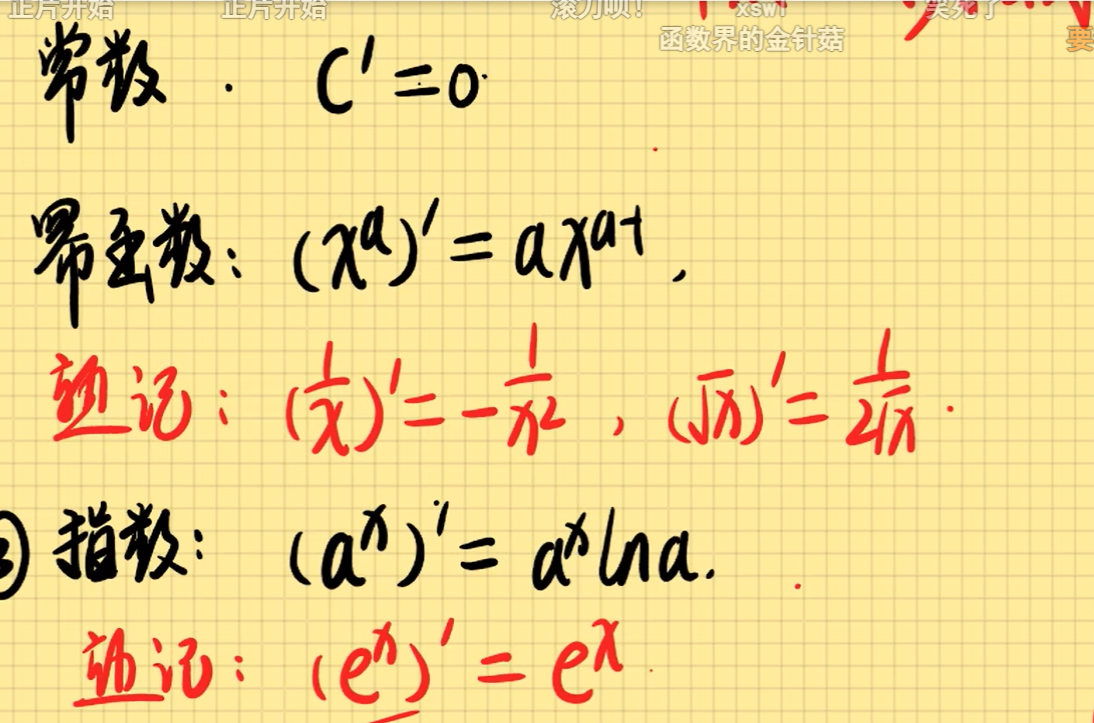 正片开始 正片开始 滚刀呗! xswl 笑死了
函数界的金针菇 要
常数. C′=0
幂函数: (xᵃ)′=axᵃ⁻¹,
熟记: (1/x)′=-1/x², (√x)′=1/2√x.
指数: (aˣ)′=aˣlna.
熟记: (eˣ)′=eˣ